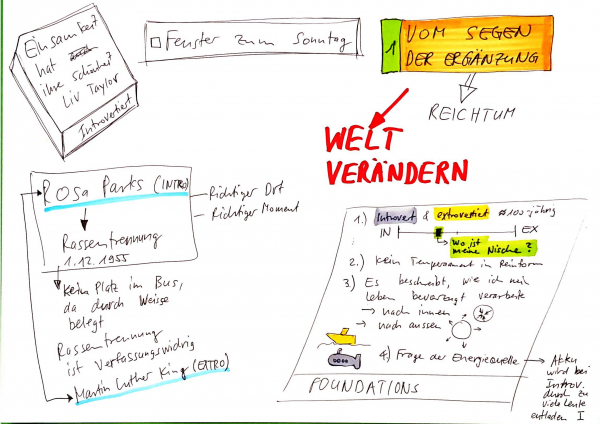 Einsamkeit
hat
ihre Schönheit
Liv Taylor
Introvertiert
Fenster zum Sonntag
1 VOM SEGEN
DER ERGÄNZUNG
REICHTUM
WELT
VERÄNDERN
ROSA Parks (INTRO)
Richtiger Ort
Richtiger Moment
Rassentrennung
1.12.1955
Kein Platz im Bus,
da durch Weisse
belegt
Rassentrennung
ist verfassungswidrig
Martin Luther King (EXTRO)
1.) Introvert & extrovertiert 100-jährig
IN EX
Wo ist
meine Nische?
2.) Kein Temperament in Reinform
3) Es beschreibt, wie ich mein
Leben bevorzugt verarbeite
→ nach innen
→ nach aussen
4) Frage der Energiequelle → Akku
wird bei
Introv.
durch zu
viele Leute
entladen
FOUNDATIONS